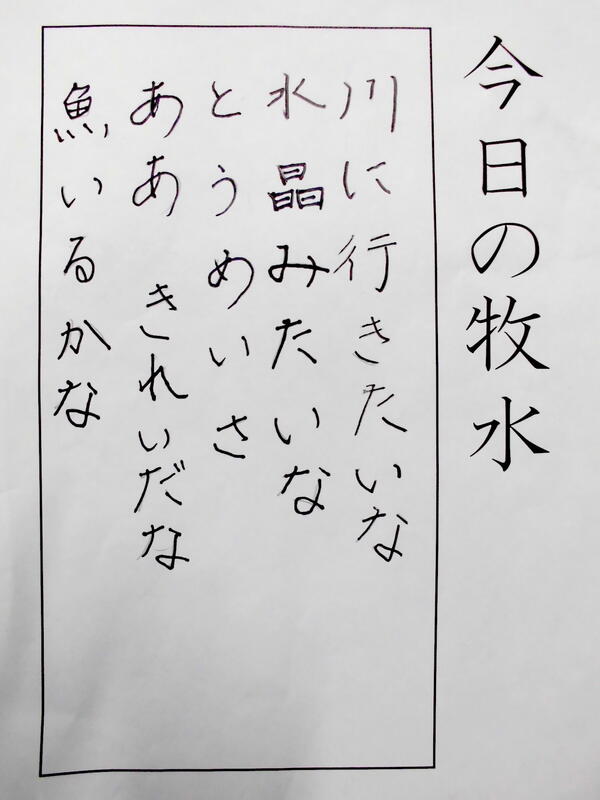 今日の牧水
川に行きたいな
水晶みたいな
とうめいさ
ああ きれいだな
魚いるかな